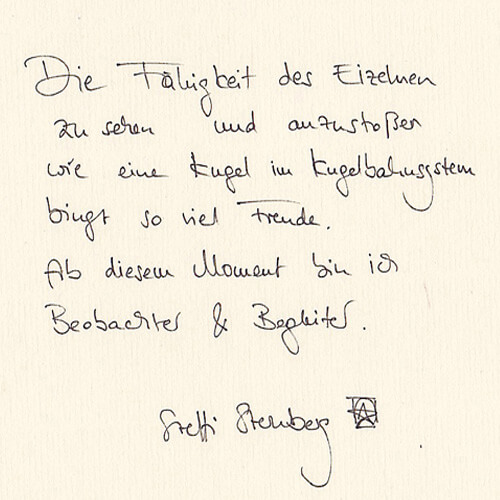 Die Fähigkeit des Eizelnen
zu sehen und anzustoßen
wie eine Kugel im Kugelbahnsystem
bingt so viel Freude.
Ab diesem Moment bin ich
Beobachter & Begleiter.
Steffi Sternberg